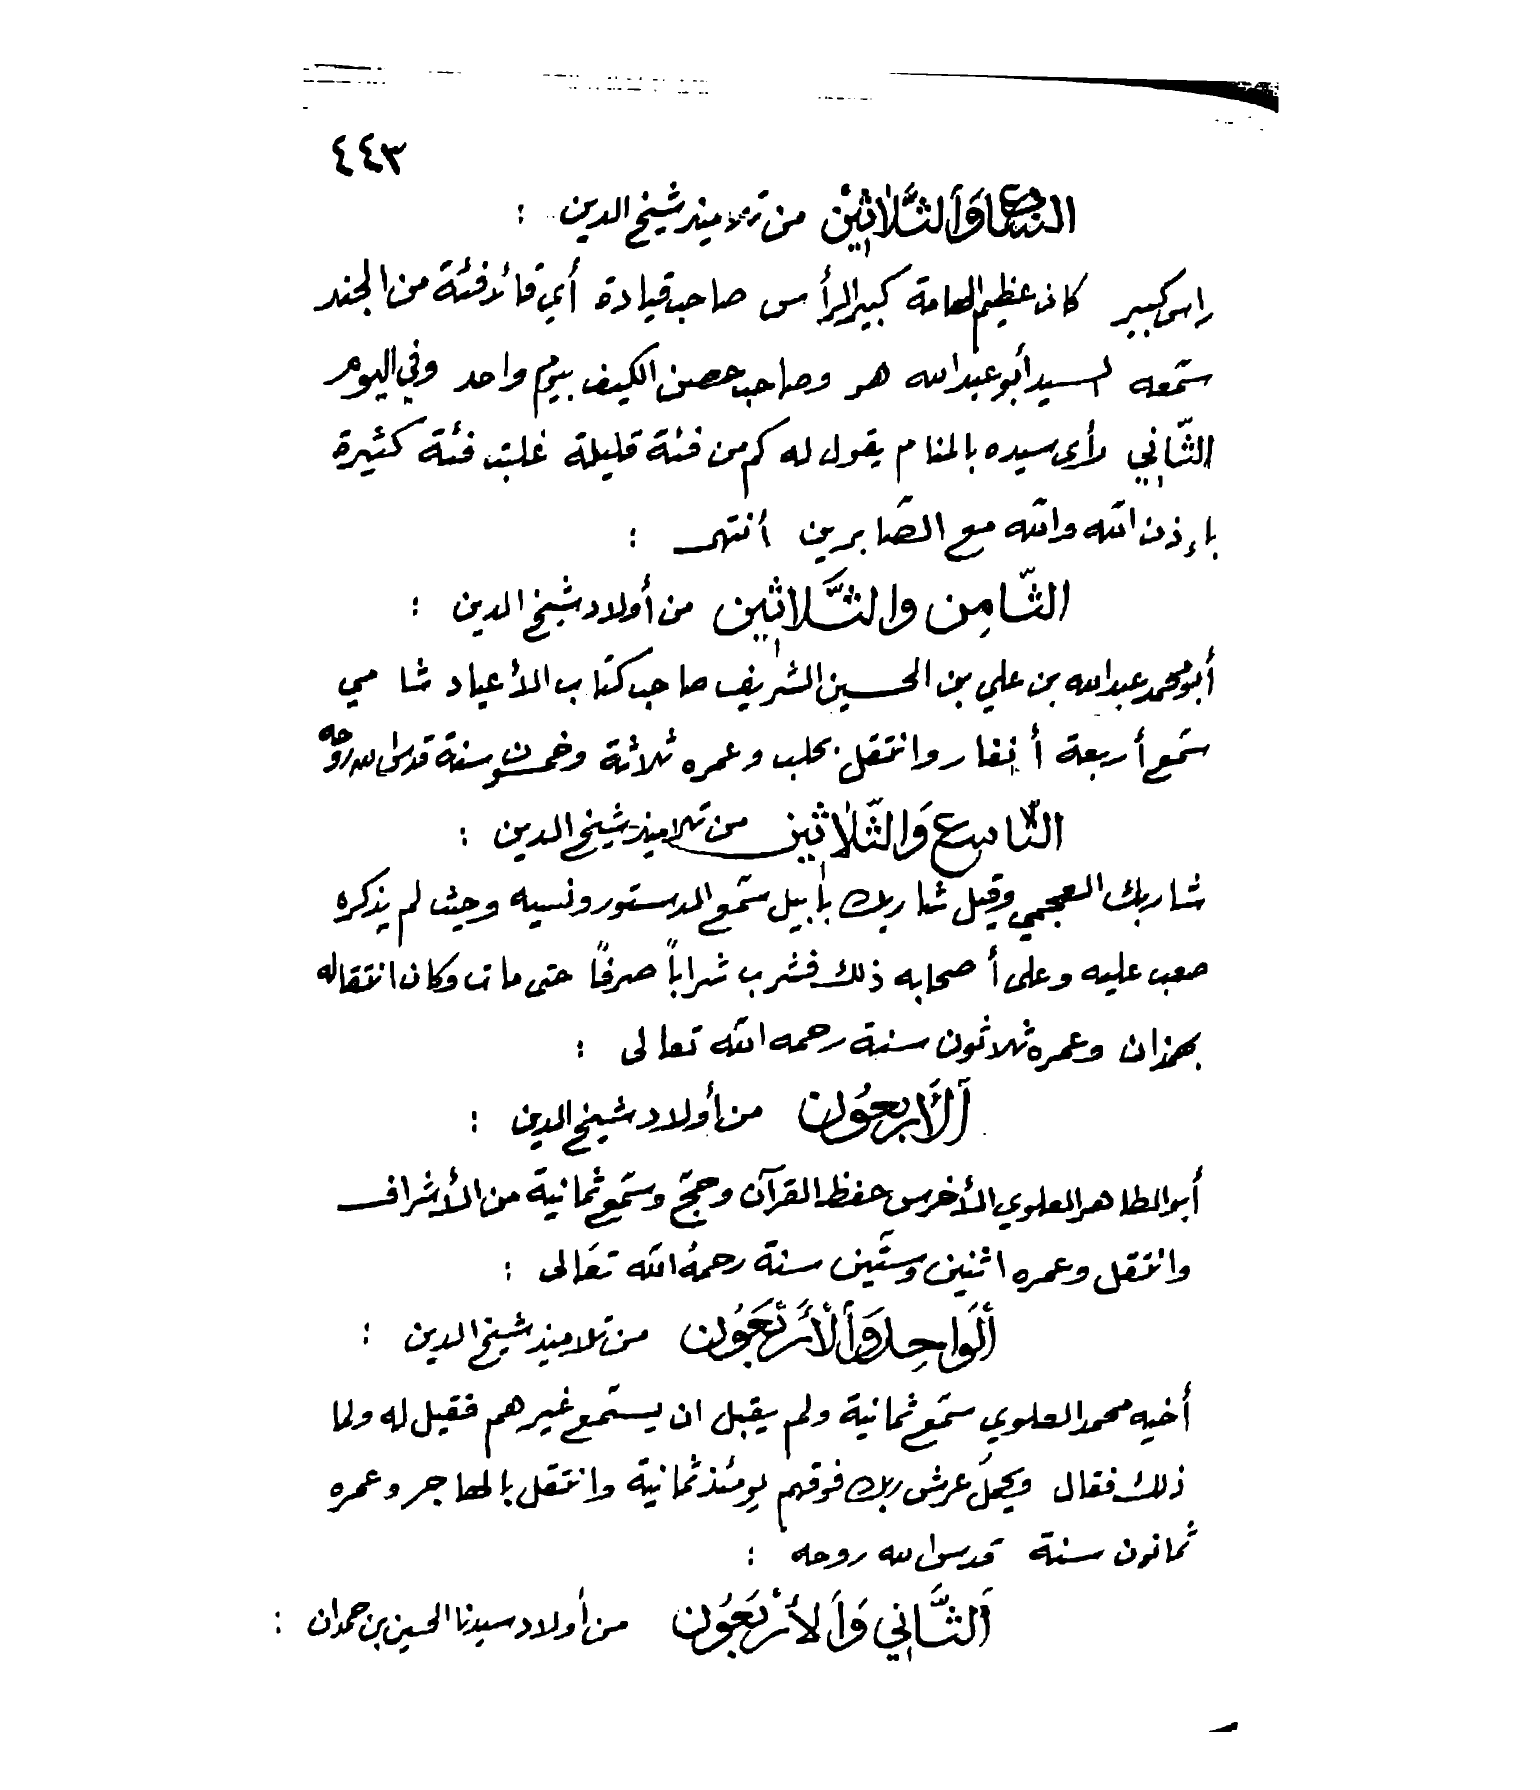 ٤٤٣
السابع وَالثَّلاثِيْن من تلاميذ شيخ الدين :
راس كبير كان عظيم الهامة كبير الرأس صاحب قيادة أي قائد فئة من الجند
سمّعه السيد أبو عبد الله هو وصاحب حصن الكهف بيوم واحد وفي اليوم
الثّاني رأى سيده بالمنام يقول له كم من فئة قليلة غلبت فئة كثيرة
بإذن الله والله مع الصّابرين أنتهى :
الثّامِن والثَّلاثين من أولاد شيخ الدين :
أبو محمد عبد الله بن علي بن الحسين الشريف صاحب كتاب الأعياد شامي
سمّع أربعة أنفار وانتقل بحلب وعمره ثلاثة وخمسون سنة قدس الله روحه
التّاسع وَالثّلاثين من تلاميذ شيخ الدين :
شاربك العجمي وقيل شاريك بابيل سمّع الدستور ونسيه وحيث لم يذكره
صعب عليه وعلى أصحابه ذلك فشرب شراباً صرفًا حتى مات وكان انتقاله
بهمذان وعمره ثلاثون سنة رحمه الله تعالى :
اَلأَربعُون من أولاد شيخ الدين :
أبو الطاهر العلوي الأخرس حفظ القرآن وحجّ وسمّع ثمانية من الأشراف
وانتقل وعمره اثنين وستّين سنة رحمهُ الله تعَالى :
اَلوَاحِد وَاَلأَرْبَعَُون من تلاميذ شيخ الدين :
أخيه محمد العلوي سمّع ثمانية ولم يقبل ان يستمع غيرهم فقيل له ولما
ذلك فقال ويحملَ عرش ربك فوقهم يومئذ ثمانية وانتقل بالهاجر وعمره
ثمانون سنة قدس الله روحه :
اَلثَّاني وَاَلأرْبَعَُون من أولاد سيدنا الحسين بن حمدان :